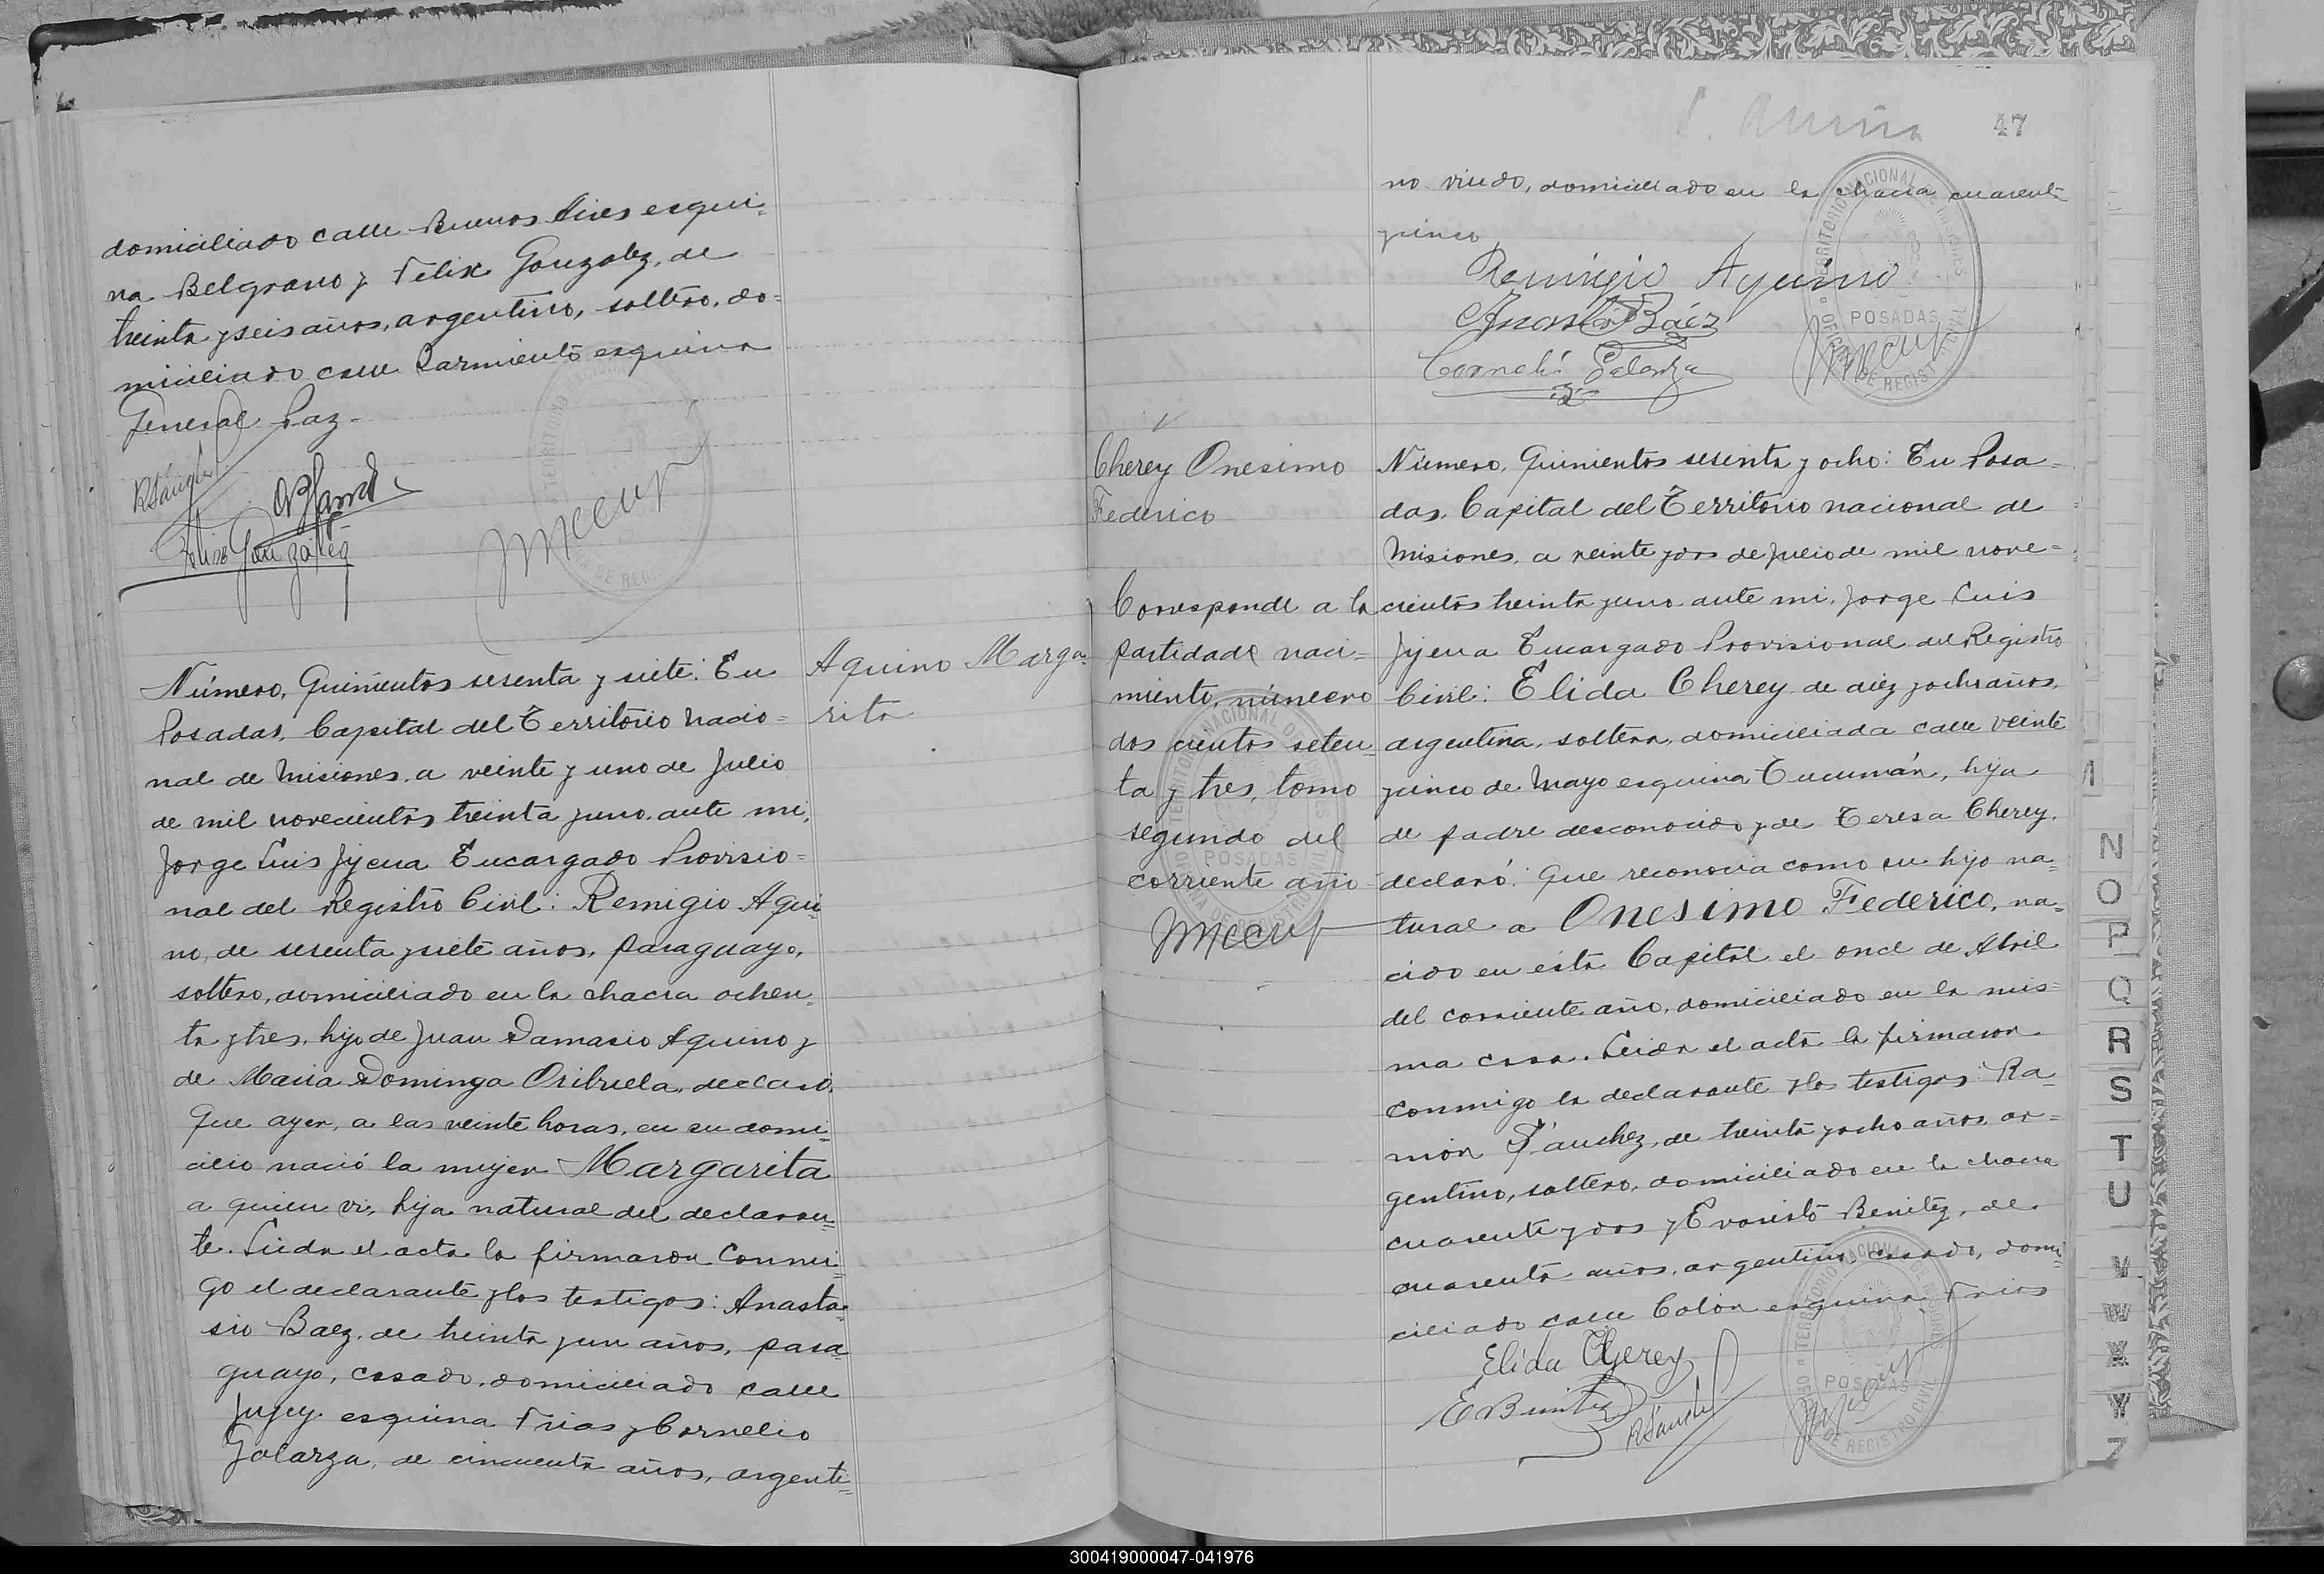 domiciliado calle Buenos Aires esqui=
na Belgrano y Felix Gonzalez, de
treinta y seis años, argentino, soltero, do=
miciliado calle Sarmiento esquina
General Paz-
RSánchez
Felix González
Número, Quinientos sesenta y siete: En
Posadas, Capital del Territorio Nacio=
nal de Misiones, a veinte y uno de Julio
de mil novecientos treinta y uno, ante mi,
Jorge Luis Jijena Encargado Provisio=
nal del Registro Civil: Remigio Aqui
no, de sesenta y siete años, paraguayo,
soltero, domiciliado en la chacra ochen=
ta y tres, hijo de Juan Damasio Aquino y
de Maria Dominga Orihuela, declaró.
Que ayer, a las veinte horas, en su domi=
cilio nació la mujer Margarita
a quien vi, hija natural del declaran=
te. Leida el acta la firmaron Conmi=
go el declarante y los testigos: Anasta=
sio Baez, de treinta y un años, para=
guayo, casado, domiciliado calle
Jujuy esquina Frias y Cornelio
Galarza, de cincuenta años, argenti=
Aquino Marga=
rita
47
no viudo, domiciliado en la chacra cuarenta
y cinco
Remigio Aquino
Anasto Báez
Corneli Galarza
TERRITORIO NACIONAL DE MISIONES
POSADAS
OFICINA DE REGISTRO CIVIL
Cherey Onesimo
Federico
Corresponde a la
partida de naci=
miento, número
dos cientos seten=
ta y tres, tomo
segundo del
corriente año
Número, Quinientos sesenta y ocho: En Posa=
das, Capital del Territorio nacional de
Misiones, a veinte y dos de Julio de mil nove=
cientos treinta y uno, ante mi, Jorge Luis
Jijena Encargado Provisional del Registro
Civil: Elida Cherey de diez y ocho años,
argentina, soltera, domiciliada calle veinte
y cinco de Mayo esquina Tucumán, hija
de padre desconocido y de Teresa Cherey,
declaró: Que reconocia como su hijo na=
tural a Onesimo Federico, na=
cido en esta Capital el once de Abril
del corriente año, domiciliado en la mis=
ma casa. Leida el acta la firmaron
conmigo la declarante y los testigos: Ra=
món Sánchez, de treinta y ocho años, ar=
gentino, soltero, domiciliado en la chacra
cuarenta y dos y Evaristo Benitez, de
cuarenta años, argentino, casado, domi=
ciliado calle Colón esquina Frias
Elida Cherey
EBenitez
RSánchez
TERRITORIO NACIONAL DE MISIONES
POSADAS
OFICINA DE REGISTRO CIVIL
N
O
P
Q
R
S
T
U
V
W
X
Y
Z
300419000047-041976